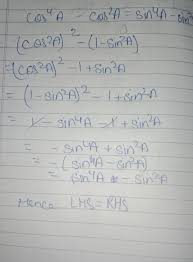 cos⁴A - cos²A = sin⁴A - sin²A
(cos²A)² - (1-sin²A)
= (cos²A)² - 1 + sin²A
= (1-sin²A)² - 1 + sin²A
= 1 - sin⁴A - 1 + sin²A
= - sin⁴A + sin²A
= - (sin⁴A - sin²A)
= sin⁴A - sin²A
Hence LHS = RHS